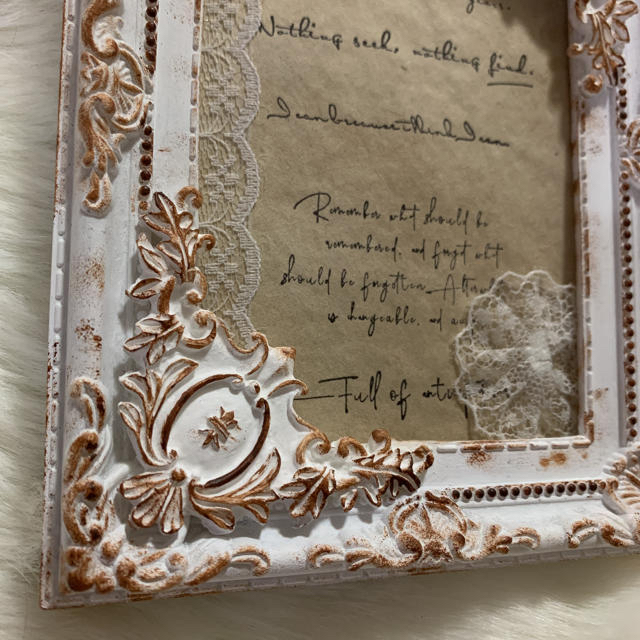 Nothing seek, nothing find.
I am because I think I am
Remember what should be
remembered, and forget what
should be forgotten.—Alter
is changeable, and
—Full of